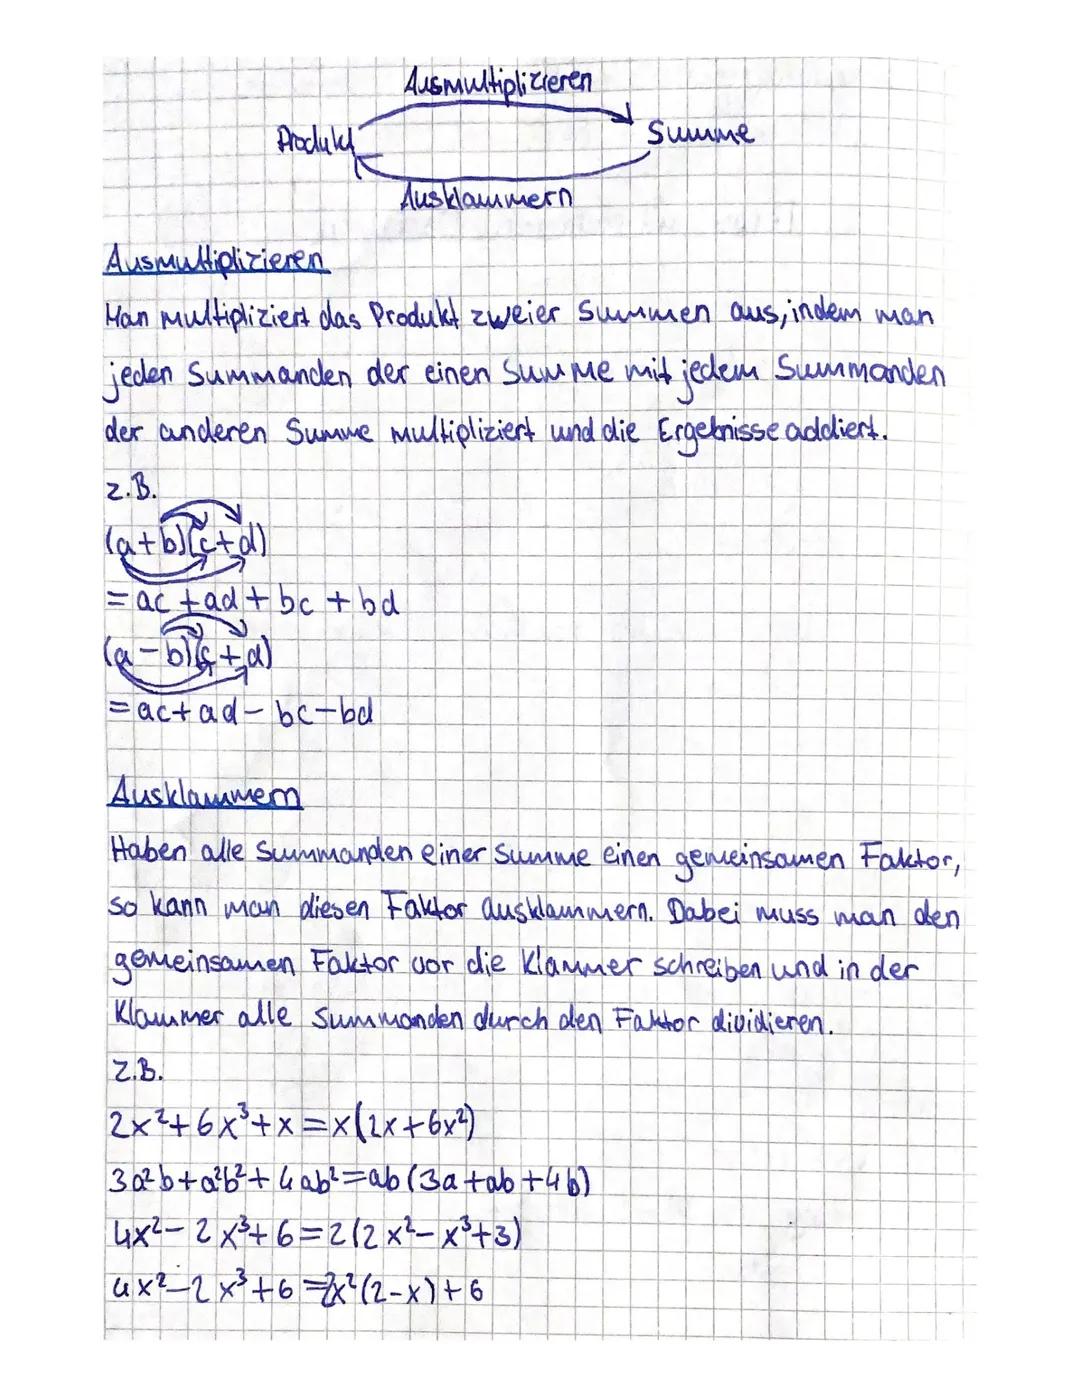 Ausmultiplizieren
Produkt
Summe
Ausklammern
Ausmultiplizieren
Man multipliziert das Produkt zweier Summen aus, indem man
jeden Summanden der einen Summe mit jedem Summanden
der anderen Summe multipliziert und die Ergebnisse addiert.
z.B.
(a+b)(c+d)
= ac + ad + bc + bd
(a-b)(c+d)
= ac + ad - bc - bd
Ausklammern
Haben alle Summanden einer Summe einen gemeinsamen Faktor,
so kann man diesen Faktor ausklammern. Dabei muss man den
gemeinsamen Faktor vor die Klammer schreiben und in der
Klammer alle Summanden durch den Faktor dividieren.
z.B.
2x²+6x³+x=x(2x+6x²)
3a²b+a²b²+4ab²=ab(3a+ab+4b)
4x²-2x³+6=2(2x²-x³+3)
4x²-2x³+6=2x²(2-x)+6